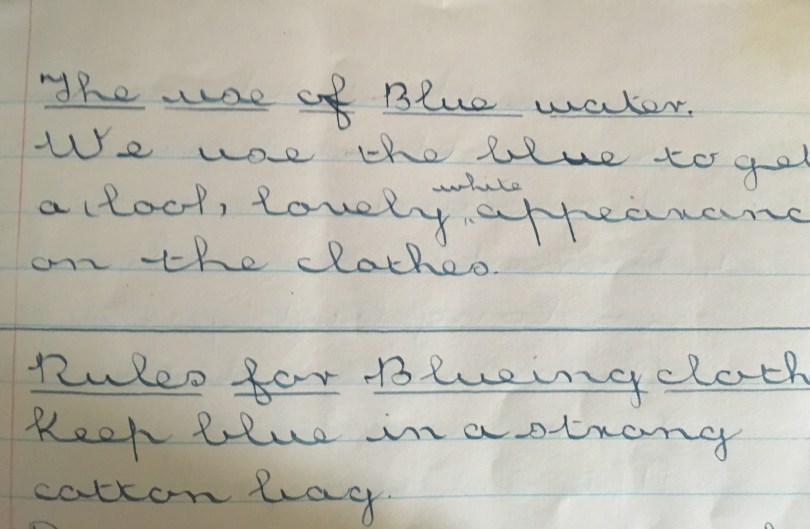 The use of Blue water.
We use the blue to get
a cool, lovely, white appearanc
on the clothes.
Rules for Blueing cloth
Keep blue in a strong
cotton bag.